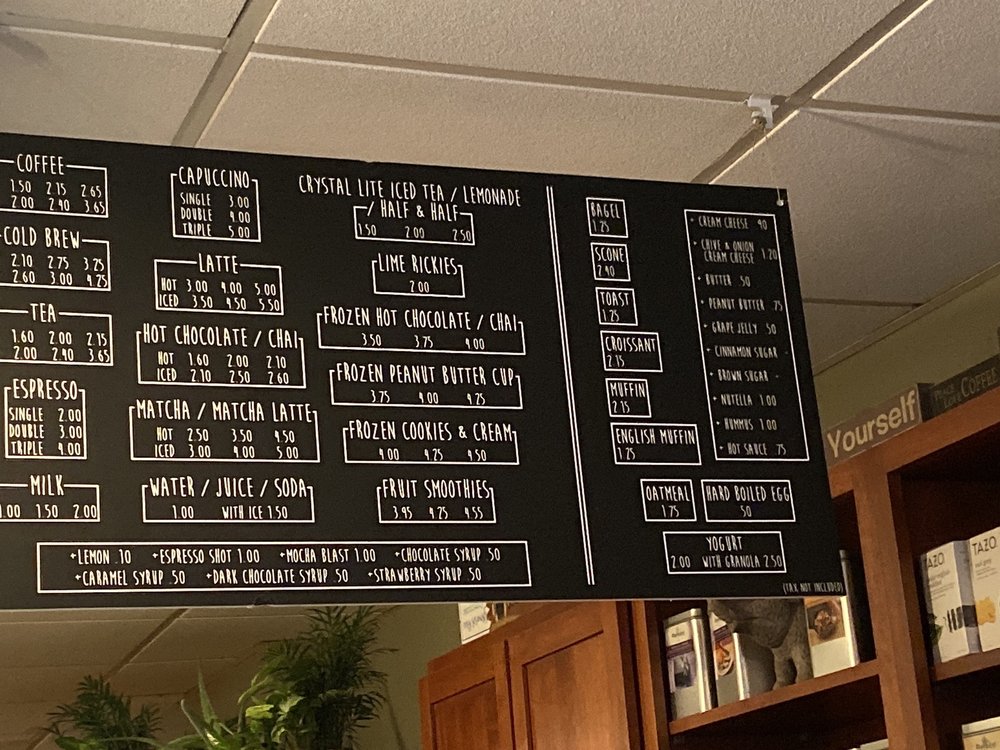 COFFEE
1.50 2.15 2.65
2.00 2.40 3.65
COLD BREW
2.10 2.75 3.25
2.60 3.00 4.25
TEA
1.60 2.00 2.15
2.00 2.40 3.65
ESPRESSO
SINGLE 2.00
DOUBLE 3.00
TRIPLE 4.00
MILK
1.00 1.50 2.00
CAPUCCINO
SINGLE 3.00
DOUBLE 4.00
TRIPLE 5.00
LATTE
HOT 3.00 4.00 5.00
ICED 3.50 4.50 5.50
HOT CHOCOLATE / CHAI
HOT 1.60 2.00 2.10
ICED 2.10 2.50 2.60
MATCHA / MATCHA LATTE
HOT 2.50 3.50 4.50
ICED 3.00 4.00 5.00
WATER / JUICE / SODA
1.00 WITH ICE 1.50
CRYSTAL LITE ICED TEA / LEMONADE
/ HALF & HALF
1.50 2.00 2.50
LIME RICKIES
2.00
FROZEN HOT CHOCOLATE / CHAI
3.50 3.75 4.00
FROZEN PEANUT BUTTER CUP
3.75 4.00 4.25
FROZEN COOKIES & CREAM
4.00 4.25 4.50
FRUIT SMOOTHIES
3.95 4.25 4.55
+LEMON .10 +ESPRESSO SHOT 1.00 +MOCHA BLAST 1.00 +CHOCOLATE SYRUP .50
+CARAMEL SYRUP .50 +DARK CHOCOLATE SYRUP .50 +STRAWBERRY SYRUP .50
BAGEL
1.25
SCONE
2.40
TOAST
1.25
CROISSANT
2.15
MUFFIN
2.15
ENGLISH MUFFIN
1.25
+ CREAM CHEESE .90
+ CHIVE & ONION
CREAM CHEESE 1.20
+ BUTTER .50
+ PEANUT BUTTER .75
+ GRAPE JELLY .50
+ CINNAMON SUGAR -
+ BROWN SUGAR -
+ NUTELLA 1.00
+ HUMMUS 1.00
+ HOT SAUCE .75
OATMEAL
1.75
HARD BOILED EGG
.50
YOGURT
2.00 WITH GRANOLA 2.50
(TAX NOT INCLUDED)
Yourself
PEACE
LOVE COFFEE
TAZO
TAZO